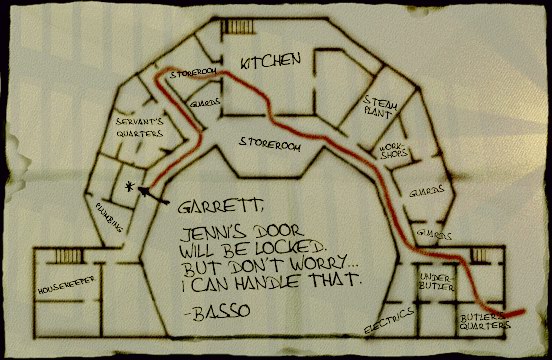 KITCHEN
STOREROOM
GUARDS
STEAM
PLANT
SERVANT'S
QUARTERS
STOREROOM
WORK-
SHOPS
GUARDS
*
PLUMBING
GARRETT,
JENNI'S DOOR
WILL BE LOCKED.
BUT DON'T WORRY...
I CAN HANDLE THAT.
-BASSO
GUARDS
HOUSEKEEPER
UNDER-
BUTLER
ELECTRICS
BUTLER'S
QUARTERS